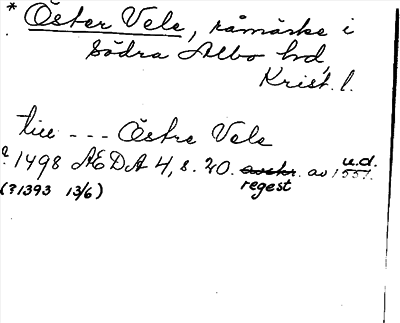 * Öster Vele, råmärke i
Södra Albo hd,
Krist. l.
till --- Östre Vele
? 1498 ÆDA 4, s. 20. avskr. av 1551. u.d.
(?1393 13/6) regest